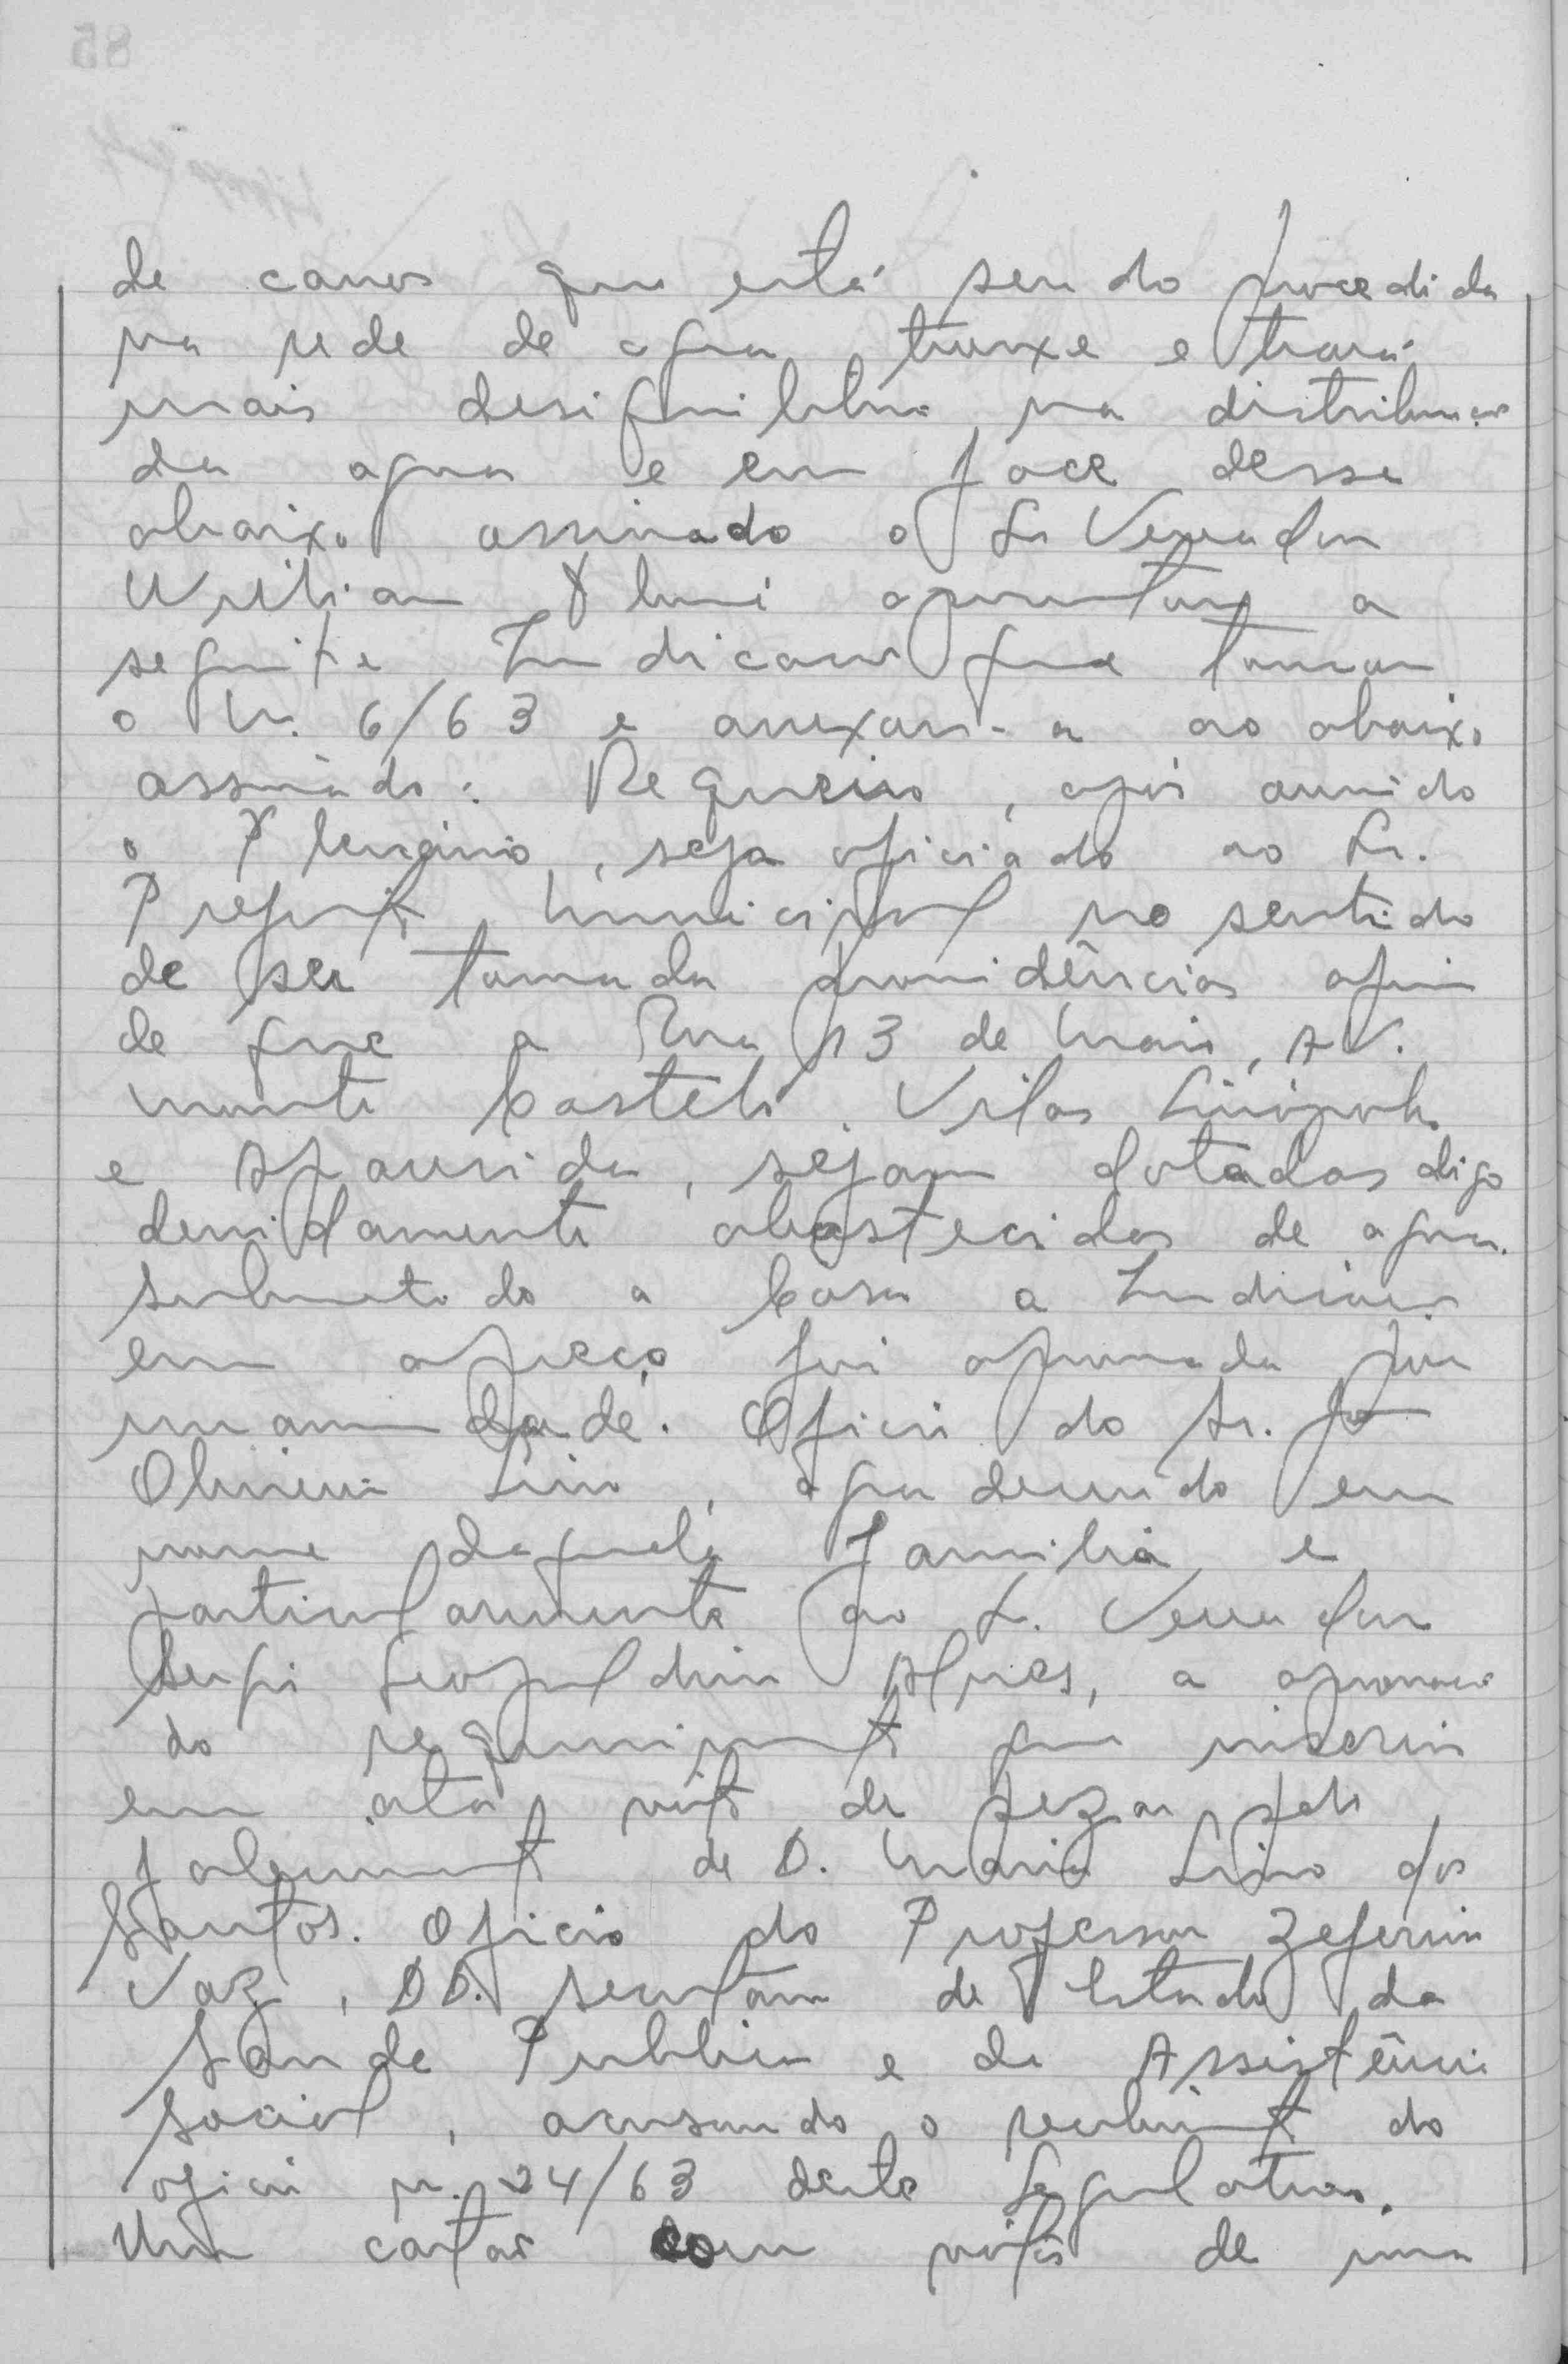 de canos que está sendo procedida
na rede de agua, trouxe e trará
mais desiquilibrio na distribuição
da agua e em face desse
abaixo assinado o Sr Vereador
Willian apresentou a
seguinte Indicação que tomou
o Nr. 6/63 e anexou-a ao abaixo
assinado: Requeiro, após ouvido
o Plenário, seja oficiado ao Sr.
Prefeito Municipal no sentido
de ser tomada providências afim
de que a Rua 13 de Maio, AV.
Monte Castelo, Vilas Linópolis
e Aparecida, sejam dotadas digo
devidamente abastecidas de agua.
Submetido a Casa a Indicação
em apreço foi aprovada por
unanimidade. Oficio do Sr. José
Oliveira Lino, agradecendo em
nome daquela Familia e
particularmente ao Sr. Vereador
Leopoldino Alves, a aprovação
do requerimento que inseriu
em ata voto de pezar pelo
falecimento de D. Maria Lino dos
Santos. Oficio do Professor Zeferino
Vaz, DD. Secretário de Estado da
Saude Publica e da Assistência
Social, acusando o recebimento do
oficio n. 24/63 deste Legislativo.
Um cartão com votos de uma